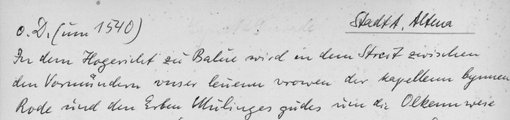 o. D. (um 1540) Stadt A. Altena
In dem Hogericht zu Balve wird in dem Streit zwischen
den Vormündern unser lewenn vrowen der kapellenn bynnen
Rode und den Erben Mulinges gudes um die Olkenn weie